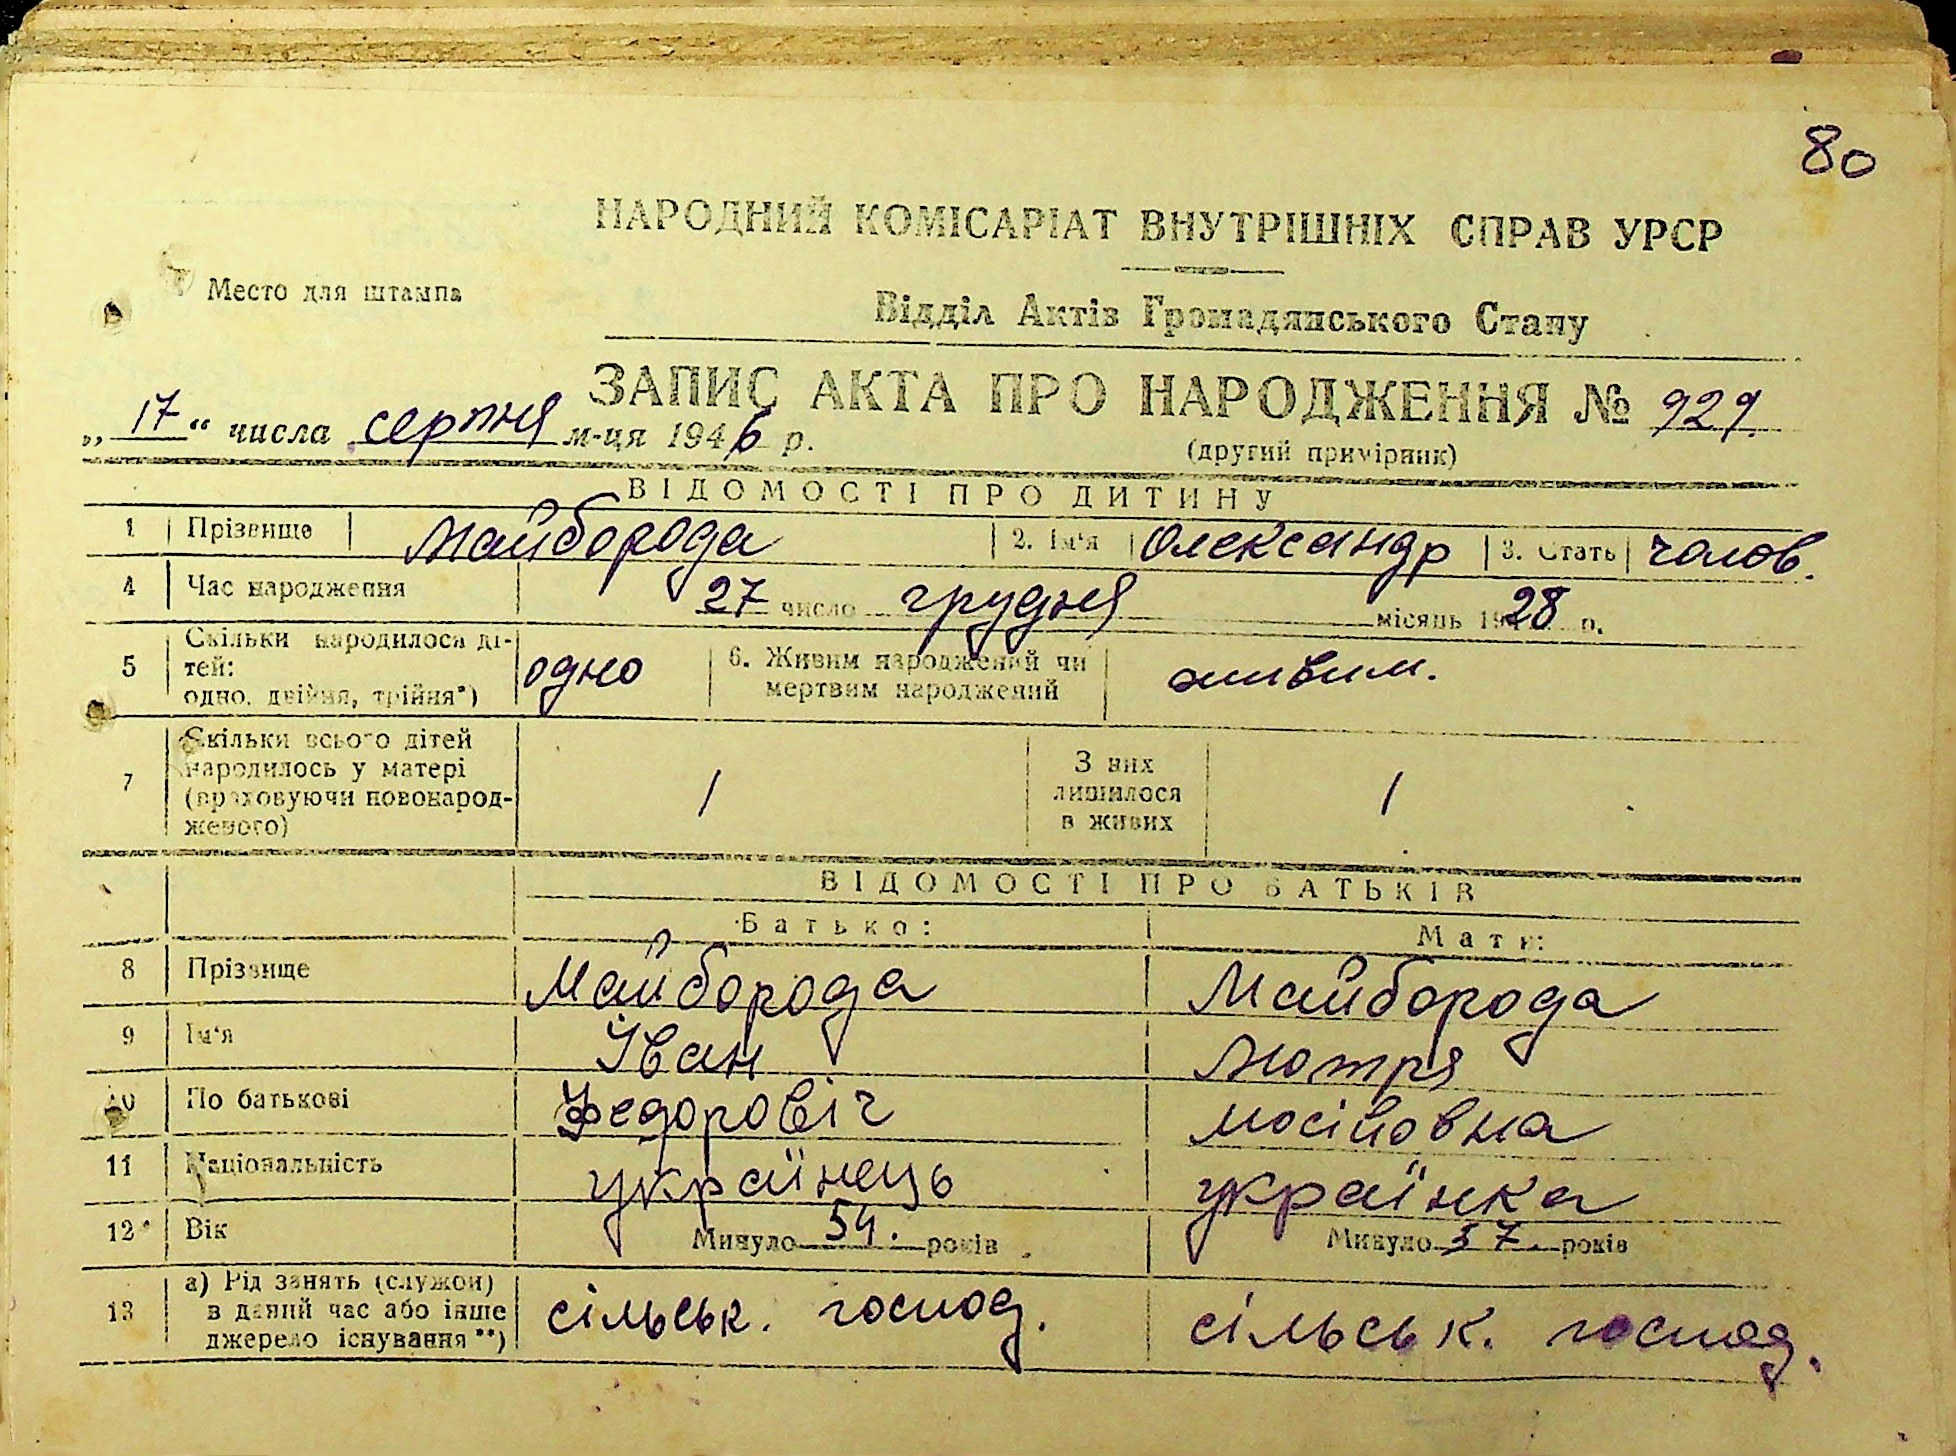 80
НАРОДНИЙ КОМІСАРІАТ ВНУТРІШНІХ СПРАВ УРСР
Место для штампа
Відділ Актів Громадянського Стану
ЗАПИС АКТА ПРО НАРОДЖЕННЯ № 929.
„17“ числа серпня м-ця 1946 р.
(другий примірник)
ВІДОМОСТІ ПРО ДИТИНУ
1 Прізвище Майборода 2. Ім'я Олександр 3. Стать чолов.
4 Час народження 27 число грудня місяць 1928 р.
5 Скільки народилося ді-
тей:
одно, двійня, трійня*) одно 6. Живим народжений чи
мертвим народжений живим.
7 Скільки всього дітей
народилось у матері
(враховуючи новонарод-
женого) 1 З них
лишилося
в живих 1
ВІДОМОСТІ ПРО БАТЬКІВ
Батько: Мати:
8 Прізвище Майборода Майборода
9 Ім'я Іван Мотря
10 По батькові Федоровіч Мосіповна
11 Національність українець українка
12 Вік Минуло 54. років Минуло 57. років
13 а) Рід занять (служби)
в даний час або інше
джерело існування**) сільськ. господ. сільськ. господ.